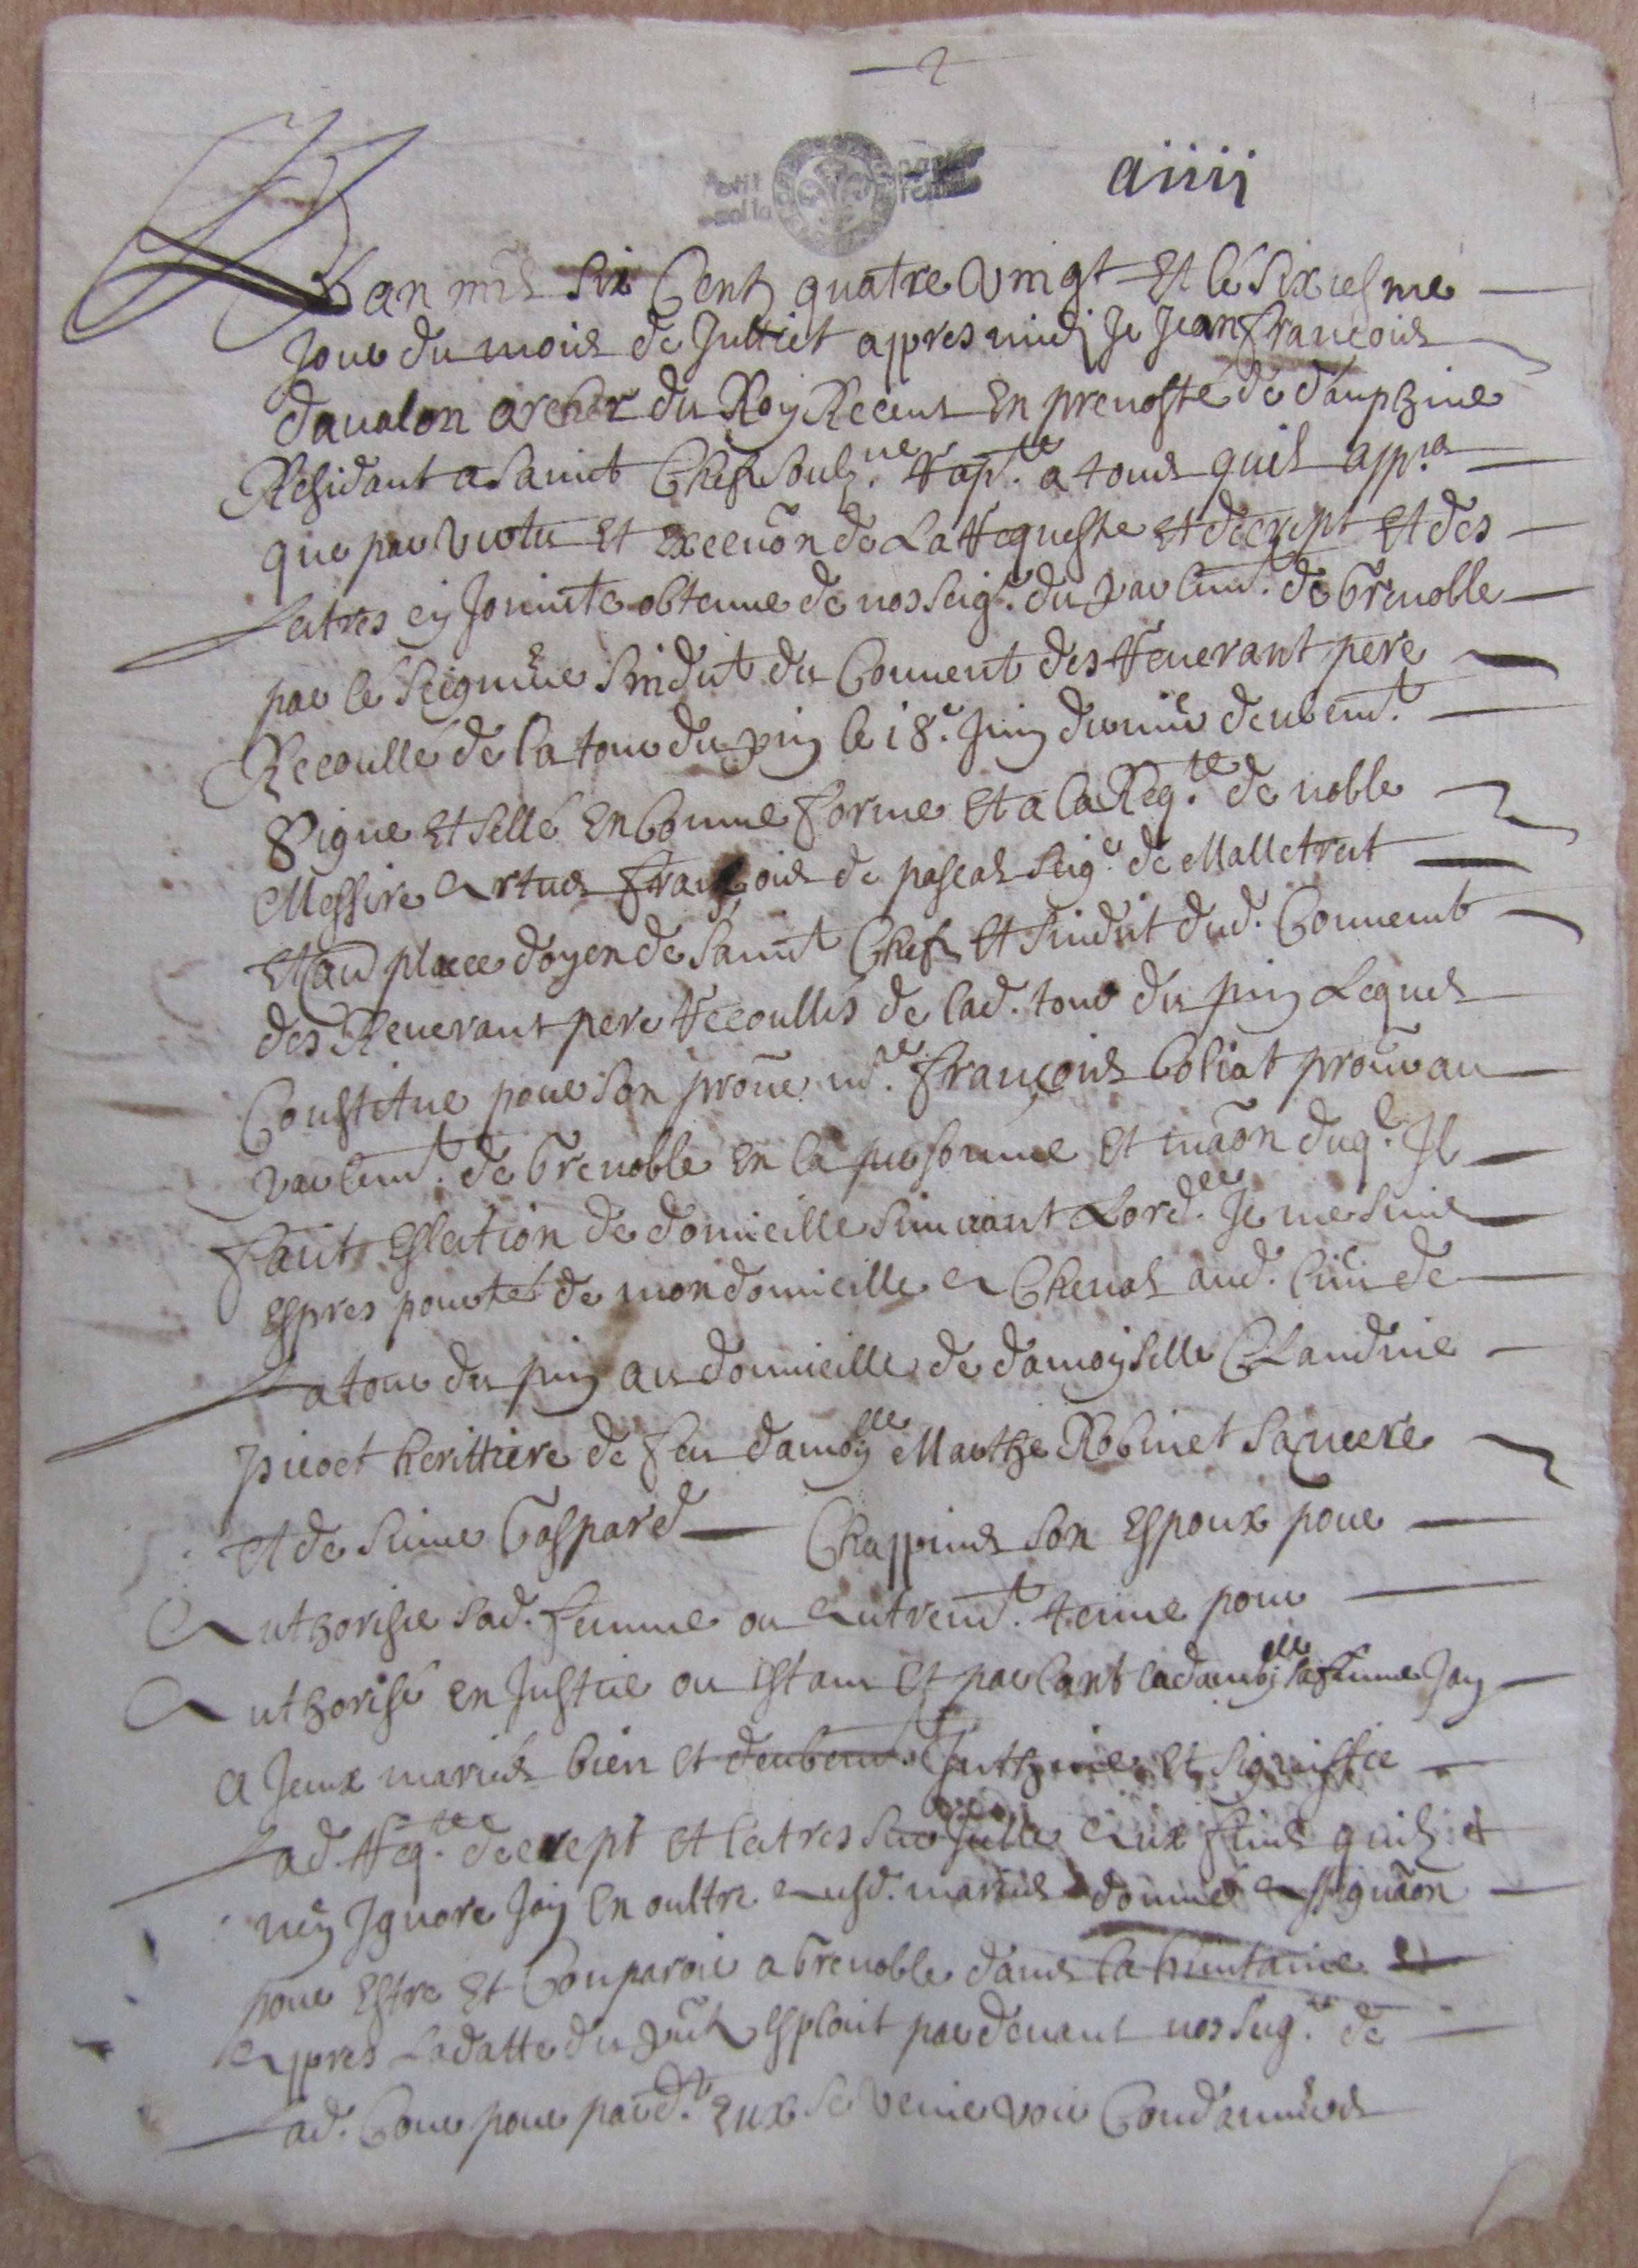 2
aiiii
Lan mil Six Cent quatre Vingt Et le Sixiesme
Jour du mois de Julliet appres midy Je Jean François
davalon archer du Roy Receus En prevosté de dauphine
Residant a Saint Chef soubz.ne
que par vertu Et Execuõn de La Requeste Et decrept Et des
Latres cy Joincte obtenue de nosseigrs du parlemt. de Grenoble
par le Seigneur Sindict du Couvent des Reverant pere
Recoullé de la tour du pin le 18e Juin dernier deubemt.
Signe Et sellé En bonne forme Et a la Reqte de noble
Messire Artus François de pascal Seigr de Malletret
Et place doyen de Saint Chef Et Sindict dud. Couvent
des Reverant pere Recoullés de lad. tour du pin Lequel
Constitue pour son proũr me François Coliat proũr au
parlemt. de Grenoble En la personne Et maõn duql Il
faict Eslection de domicille suivant Lordce Je me suis
Espres pourté de mon domicille a Cheval aud. lieu de
La tour du pin au domicille de damoyselle Claudine
pivoet herittiere de feu damoylle Marthe Robinet Sa mere
et de sieur Gaspard Chappuis Son Espoux pour
Authorise sad. femme ou autremt. tenue pour
Authorisé en Justice ou Estant Et parlant a ladamoylle sa femme Jay
a Jeux mariés bien et deubemt. Inthime Et Signiffie
Lad. Reqte decrept Et latres sur Jcelle aux fins quilz
ney Ignore Jay En oultre ausd. mariés donné assignaõn
pour Estre Et Comparoir a Grenoble dans la huictaine
appres Ladatte du pñt Esploit pardevant nosseigrs de
Lad. Cour pour pard. Eux se venir voir Condamner